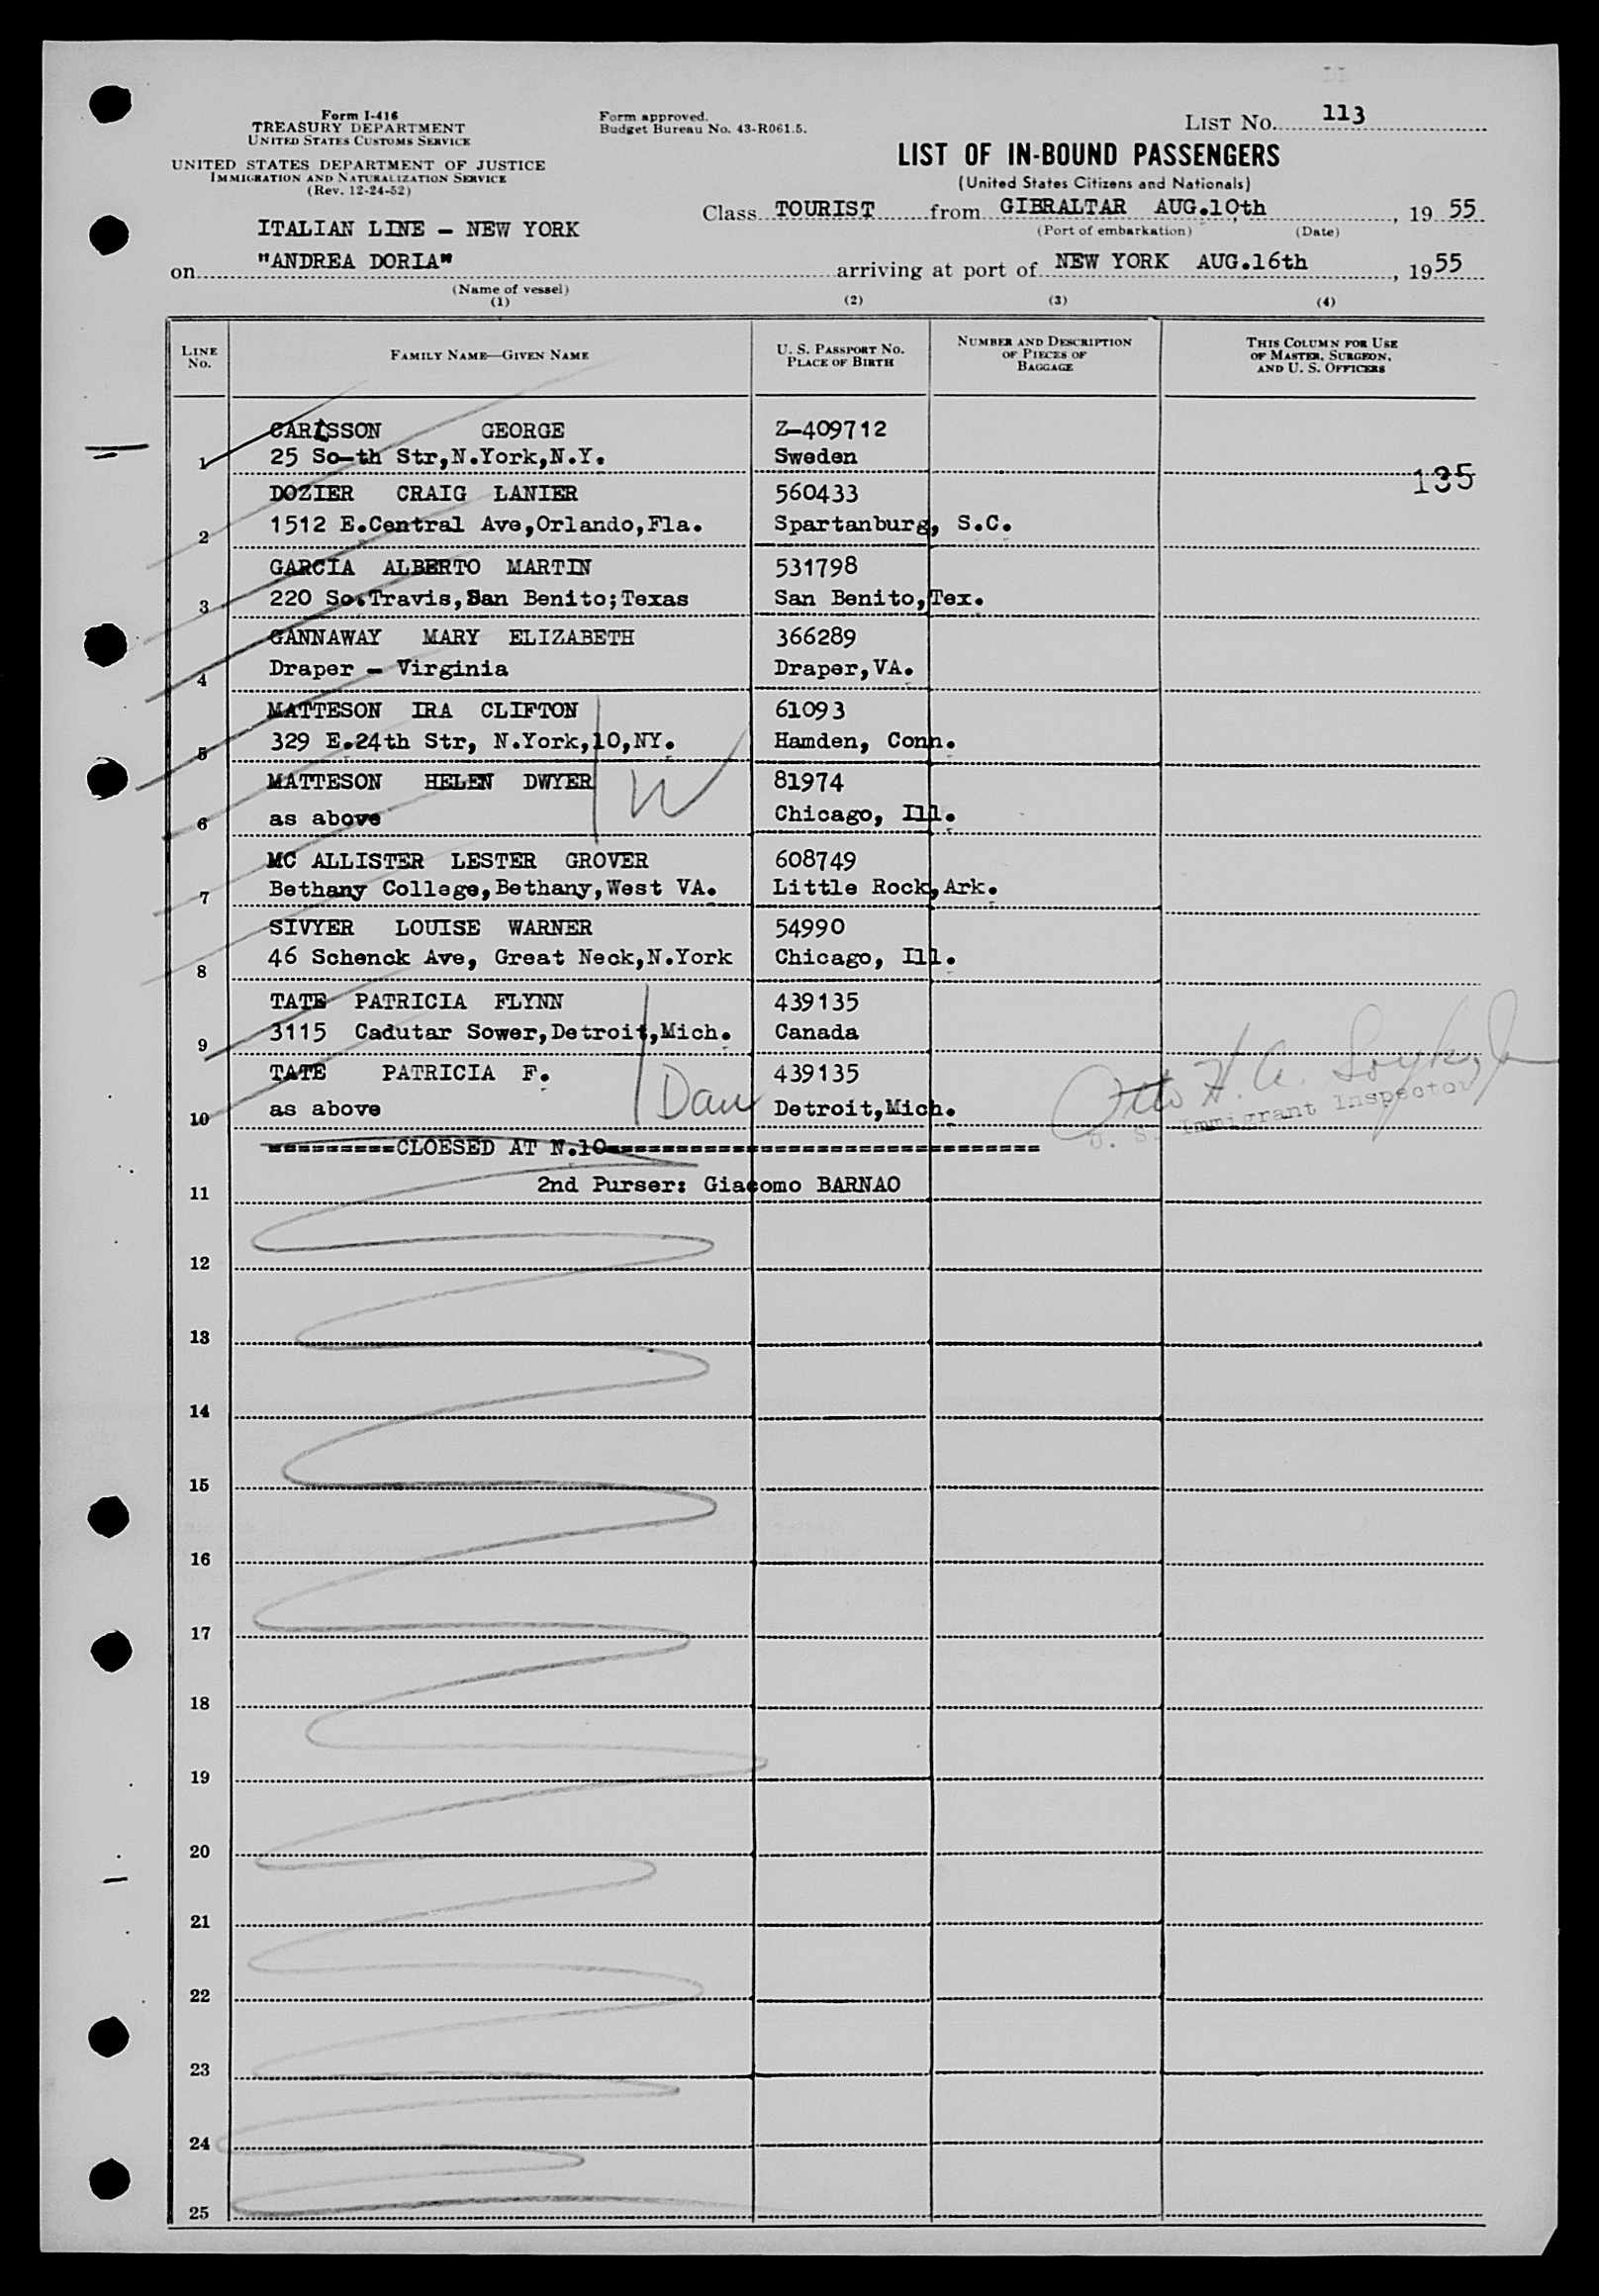 Form I-416
TREASURY DEPARTMENT
UNITED STATES CUSTOMS SERVICE
UNITED STATES DEPARTMENT OF JUSTICE
IMMIGRATION AND NATURALIZATION SERVICE
(Rev. 12-24-52)
Form approved.
Budget Bureau No. 43-R061.5.
LIST No. 113
LIST OF IN-BOUND PASSENGERS
(United States Citizens and Nationals)
Class TOURIST from GIBRALTAR AUG.10th, 19 55
(Port of embarkation) (Date)
ITALIAN LINE - NEW YORK
on "ANDREA DORIA" arriving at port of NEW YORK AUG.16th, 19 55
(Name of vessel)
(1) (2) (3) (4)
LINE No. FAMILY NAME—GIVEN NAME U. S. PASSPORT No. PLACE OF BIRTH NUMBER AND DESCRIPTION OF PIECES OF BAGGAGE THIS COLUMN FOR USE OF MASTER, SURGEON, AND U. S. OFFICERS
CARLSSON GEORGE Z-409712
1 25 So-th Str,N.York,N.Y. Sweden
135
DOZIER CRAIG LANIER 560433
2 1512 E.Central Ave,Orlando,Fla. Spartanburg, S.C.
GARCIA ALBERTO MARTIN 531798
3 220 So.Travis,San Benito;Texas San Benito,Tex.
GANNAWAY MARY ELIZABETH 366289
4 Draper - Virginia Draper,VA.
MATTESON IRA CLIFTON 61093
5 329 E.24th Str, N.York,10,NY. Hamden, Conn.
MATTESON HELEN DWYER W 81974
6 as above Chicago, Ill.
MC ALLISTER LESTER GROVER 608749
7 Bethany College,Bethany,West VA. Little Rock,Ark.
SIVYER LOUISE WARNER 54990
8 46 Schenck Ave, Great Neck,N.York Chicago, Ill.
TATE PATRICIA FLYNN 439135
9 3115 Cadutar Sower,Detroit,Mich. Canada
TATE PATRICIA F. 439135
10 as above Dau Detroit,Mich.
Otto H. A.
U. S. Immigrant Inspector
=========CLOESED AT N.10===============================
11 2nd Purser: Giacomo BARNAO
12
13
14
15
16
17
18
19
20
21
22
23
24
25